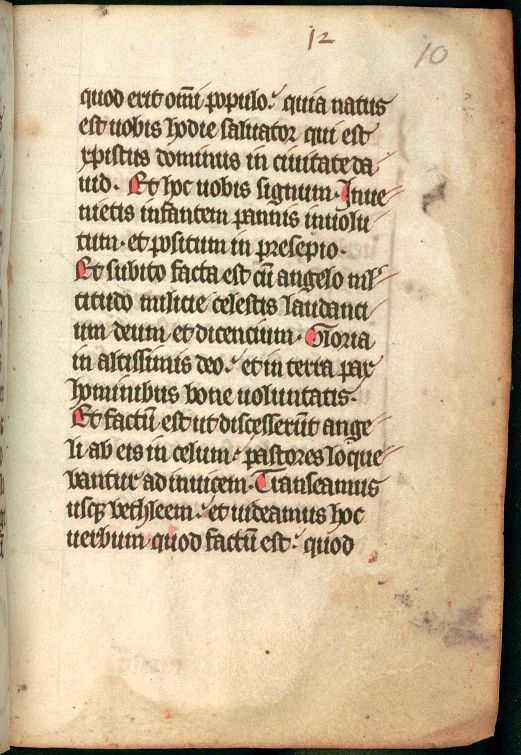 12
10
quod erit om̅i populo. quia natus
est uobis hodie saluator qui est
xpistus dominus in ciuitate da
uid. Et hoc uobis signum. Inue
nietis infantem pannis inuolu
tum. et positum in presepio.
Et subito facta est cu̅ angelo ml̅
titudo milicie celestis laudanci
um deum et dicencium. Gloria
in altissimis deo. et in terra pax
hominibus bone uoluntatis.
Et factu̅ est ut discesseru̅t ange
li ab eis in celum. pastores loque
bantur ad inuicem. Transeamus
usqꝫ bethleem. et uideamus hoc
uerbum quod factu̅ est. quod